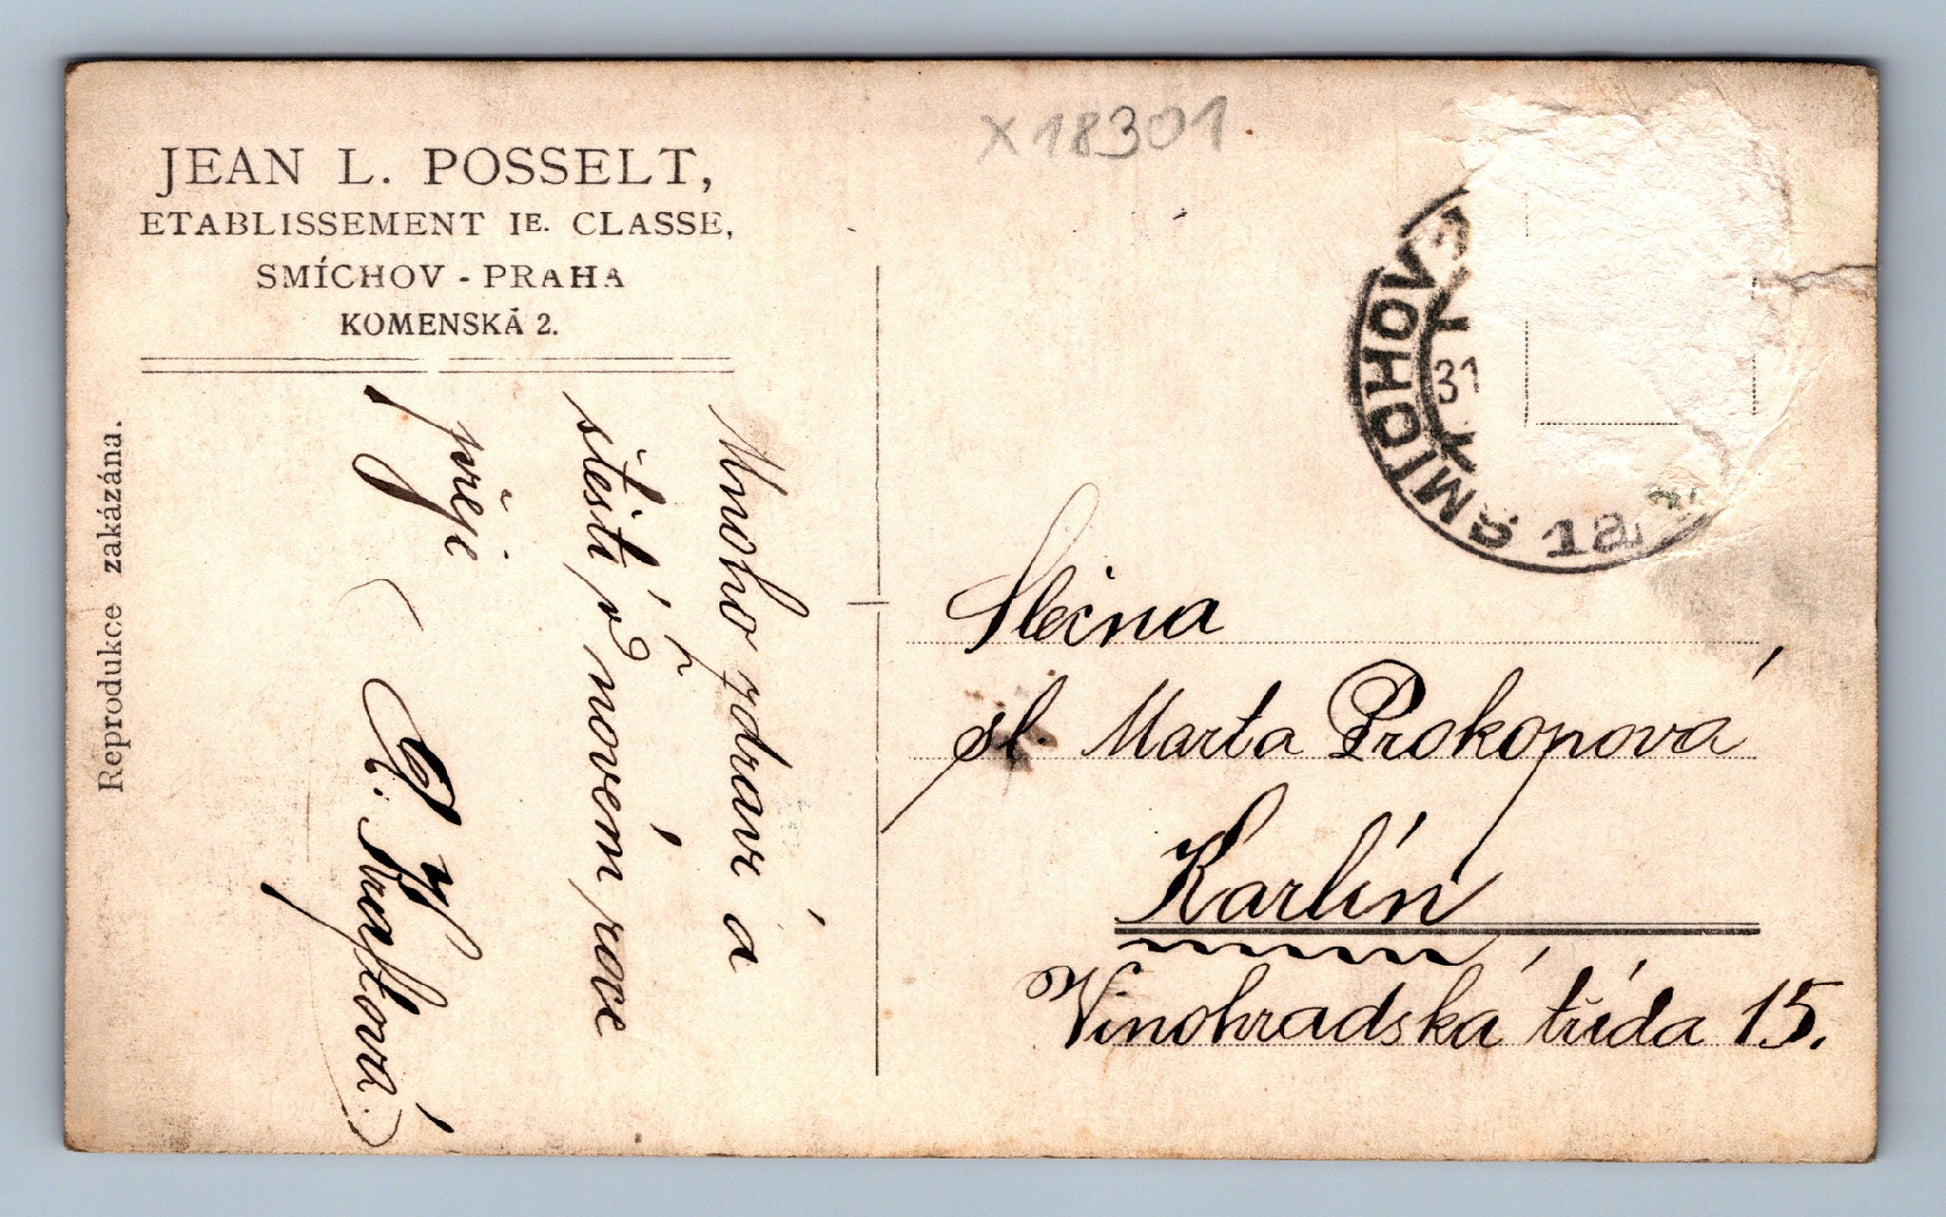 X18301
JEAN L. POSSELT,
ETABLISSEMENT IE. CLASSE,
SMÍCHOV - PRAHA
KOMENSKÁ 2.
Reprodukce zakázána.
Mnoho zdraví a
štěstí v novém roce
přeje
Kraftová.
SMÍCHOV
31
1a
Slečna
sl. Marta Prokopová
Karlín
Vinohradská třída 15.